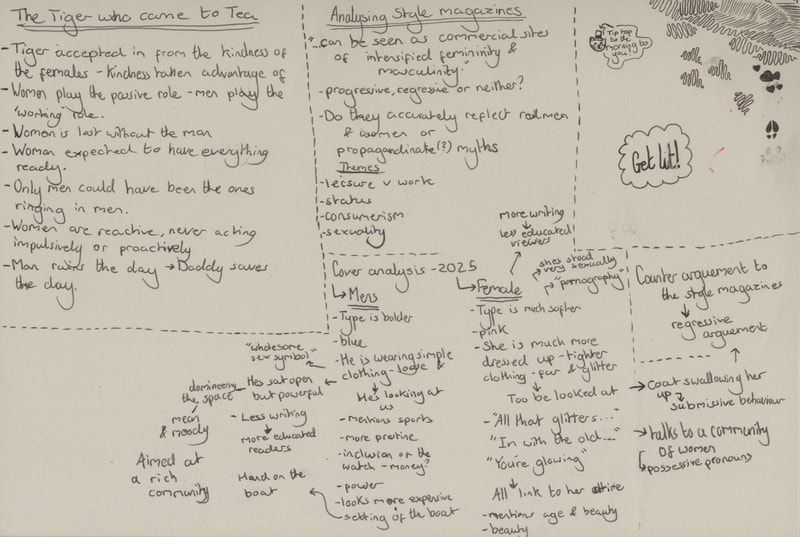 The Tiger who came to Tea
- Tiger accepted in from the kindness of
the females - kindness taken advantage of
- Women play the passive role - men play the
"working" role.
- Woman is lost without the man
- Woman expected to have everything
ready.
- Only men could have been the ones
ringing in men.
- Women are reactive, never acting
impulsively or proactively
- Man ruins the day → Daddy saves
the day.
Analysing Style magazines
"...can be seen as commercial sites
of intensified femininity &
masculinity"
- progressive, regressive or neither?
- Do they accurately reflect real men
& women or
propagandinate(?) myths
Themes
- leisure v work
- status
- consumerism
- sexuality
Tip top
be the
morning to
you!
Get lit!
Cover analysis - 2025
↳ Mens
- Type is bolder
- blue
- He is wearing simple
clothing - loose &
He's looking at
us
- mentions sports
- more pristine
- inclusion of the
watch - money?
- power
- looks more expensive
- setting of the boat
"wholesome
sex symbol"
He's sat open
but powerful
domineering
the space
mean
& moody
- Less writing
more educated
readers
Hand on the
boat
Aimed at
a rich
community
↳ Female
more writing
less educated
viewers
she's stood
very sexually
"pornography"
- Type is much softer
- pink
- She is much more
dressed up - tighter
clothing - fur & glitter
Too be looked at
- "All that glitters..."
"In with the old..."
"You're glowing"
All link to her attire
- mentions age & beauty
- beauty
Counter arguement to
the style magazines
regressive
arguement
→ Coat swallowing her
up → submissive behaviour
→ talks to a community
of women
→ possessive pronouns